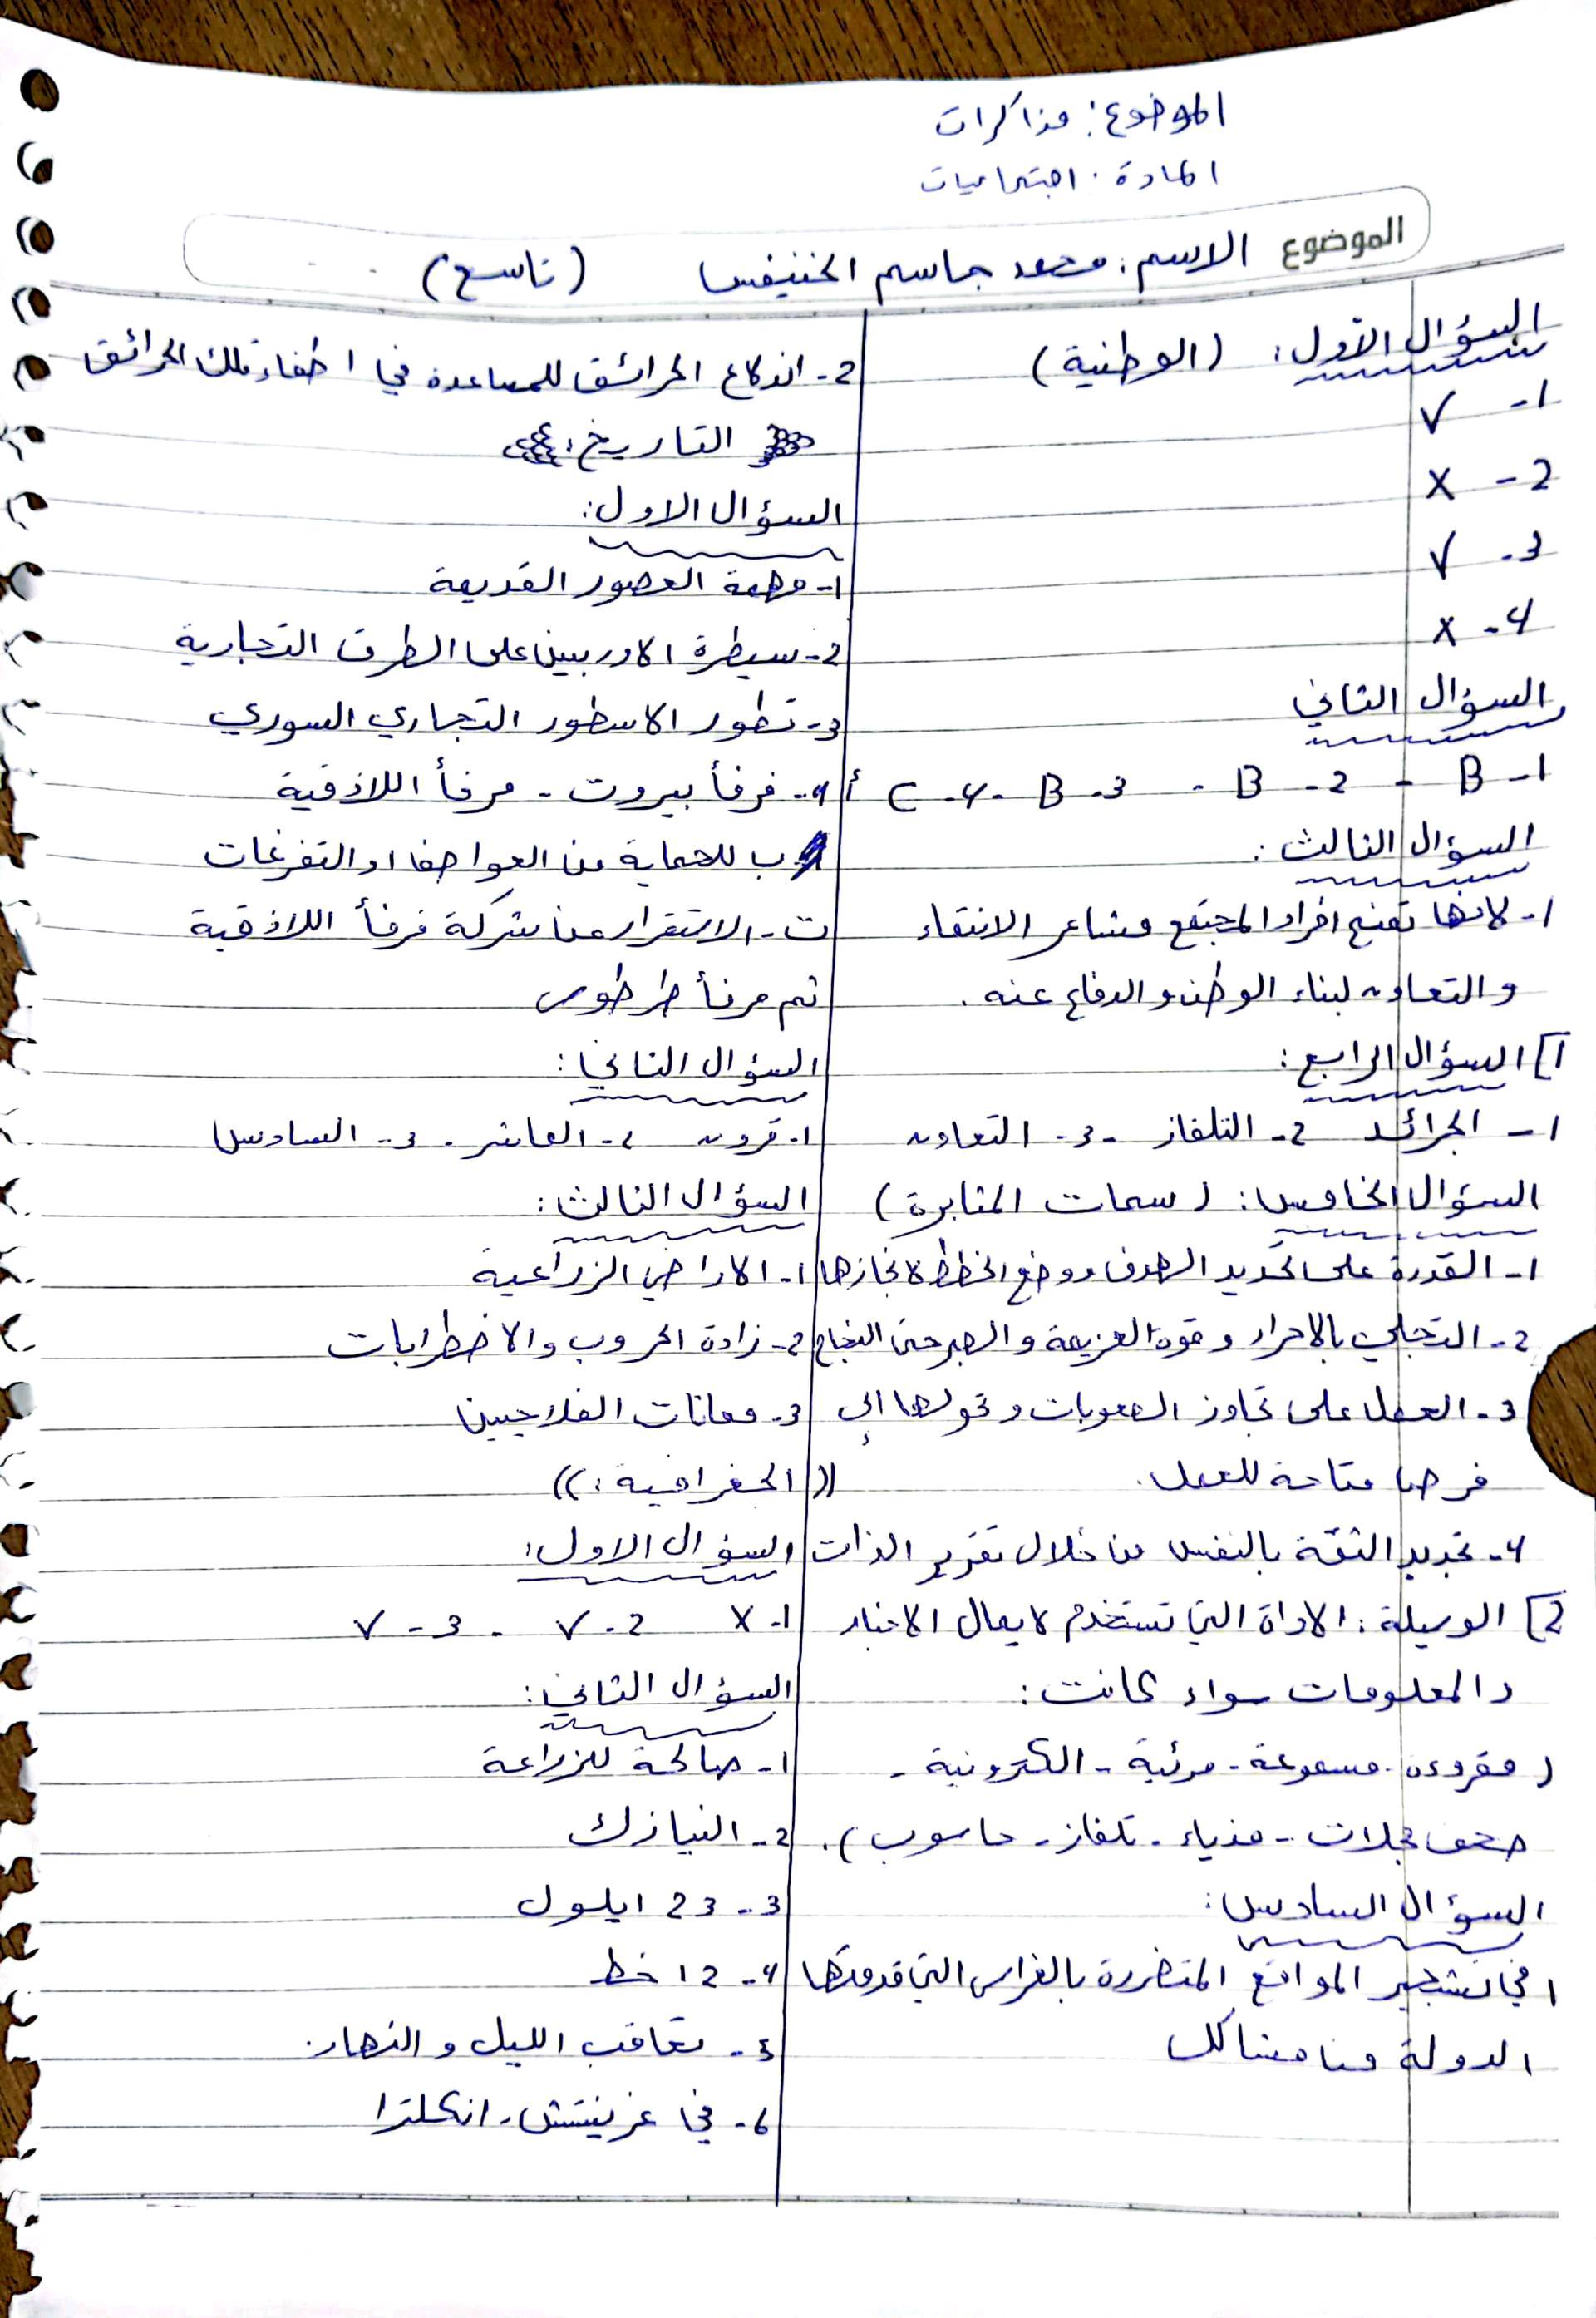 الموضوع: مذاكرات
المادة: اجتماعيات
الموضوع الاسم: محمد جاسم الخنيفس (تاسع)
السؤال الأول: (الوطنية)
1- √
2- X
3- √
4- X
السؤال الثاني
1- B - 2- B - 3- B - 4- C
السؤال الثالث:
1- لانها تمنح افراد المجتمع مشاعر الانتماء
والتعاون لبناء الوطن والدفاع عنه.
1] السؤال الرابع:
1- الجرائد 2- التلفاز 3- التعاون
السؤال الخامس: (سمات المثابرة)
1- القدرة على تحديد الهدف ووضع الخطط لانجازها
2- التحلي بالاصرار وقوة العزيمة والصبر حتى النجاح
3- العمل على تجاوز الصعوبات وتحولها إلى
فرصا متاحة للعمل.
4- تجديد الثقة بالنفس من خلال تقدير الذات
2] الوسيلة: الاداة التي تستخدم لايصال الاخبار
والمعلومات سواء كانت:
(مقروءه - مسموعة - مرئية - الكترونية -
صحف مجلات - مذياع - تلفاز - حاسوب).
السؤال السادس:
1 في تشجير المواقع المتضررة بالغراس التي قدمتها
الدولة من مشاكل
2- اندلاع الحرائق للمساعدة في اطفاء تلك الحرائق
التاريخ:
السؤال الاول:
1- مهمة العصور القديمة
2- سيطرة الاوربيين على الطرق التجارية
3- تطور الاسطور التجاري السوري
4- أ مرفأ بيروت - مرفأ اللاذقية
ب للحماية من العواصف او التفرغات
ت- الاستقرار من شركة مرفأ اللاذقية
ثم مرفأ طرطوس
السؤال الثاني:
1- قرون 2- العاشر - 3- السادس
السؤال الثالث:
1- الاراضي الزراعية
2- زادة الحروب والاضطرابات
3- معانات الفلاحيين
((الجغرافية:))
السؤال الاول:
1- X 2- √ - 3- √
السؤال الثاني:
1- صالحة للزراعة
2- النيازك
3- 23 ايلول
4- 12 خط
5- تعاقب الليل والنهار.
6- في غرينتش - انكلترا